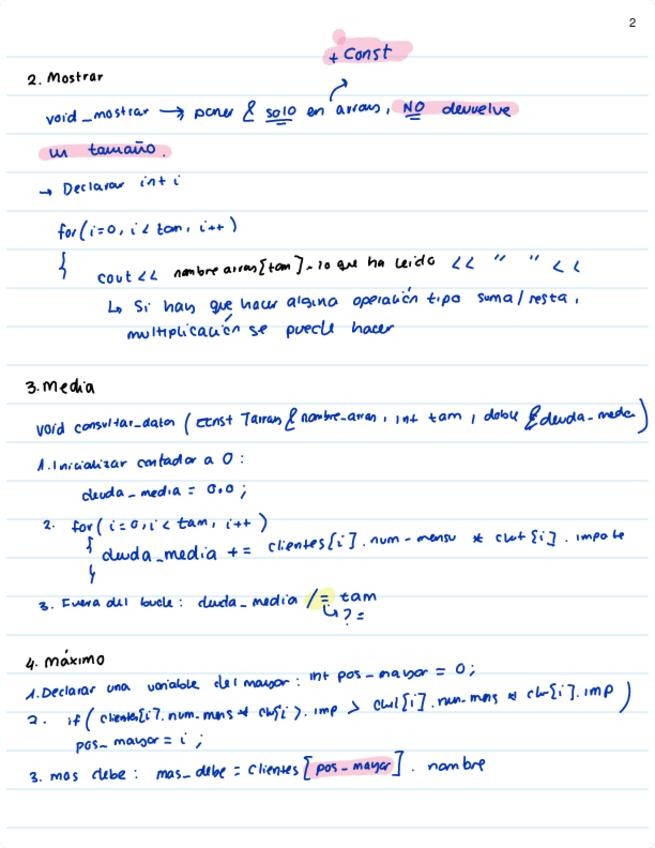 2
+ Const
2. Mostrar
void_mostrar → poner & solo en arrays, NO devuelve
un tamaño.
→ Declarar int i
for(i=0, i< tam, i++)
{
cout << nombre array[tam]. lo que ha leido << " " <<
↳ Si hay que hacer alguna operación tipo suma/resta,
multiplicación se puede hacer
3. Media
void consultar_datos (const Tarray &nombre_array, int tam, doble &deuda_media)
1. Inicializar contador a 0:
deuda_media = 0.0;
2. for(i=0, i< tam, i++)
{ deuda_media += clientes[i].num-mensu * client[i].importe
}
3. Fuera del bucle: deuda_media /= tam
↳ ? =
4. máximo
1. Declarar una variable del mayor: int pos_mayor = 0;
2. if( clientes[i].num.mens * [i].imp > [i].num.mens * [i].imp )
pos_mayor = i;
3. mas debe: mas_debe = clientes[pos_mayor].nombre